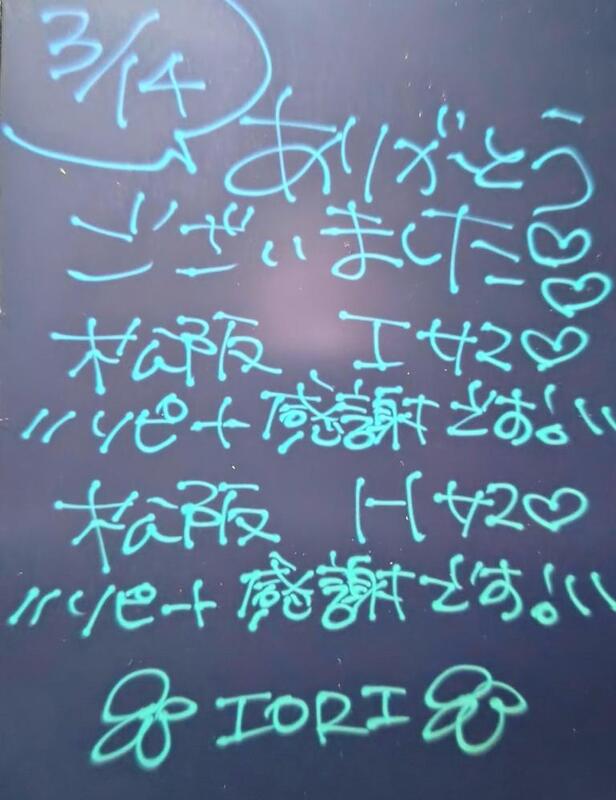 3/14
ありがとう
ございました♡♡
松阪 I サマ♡
〃リピート感謝です!〃
松阪 H サマ♡
〃リピート感謝です!〃
IORI